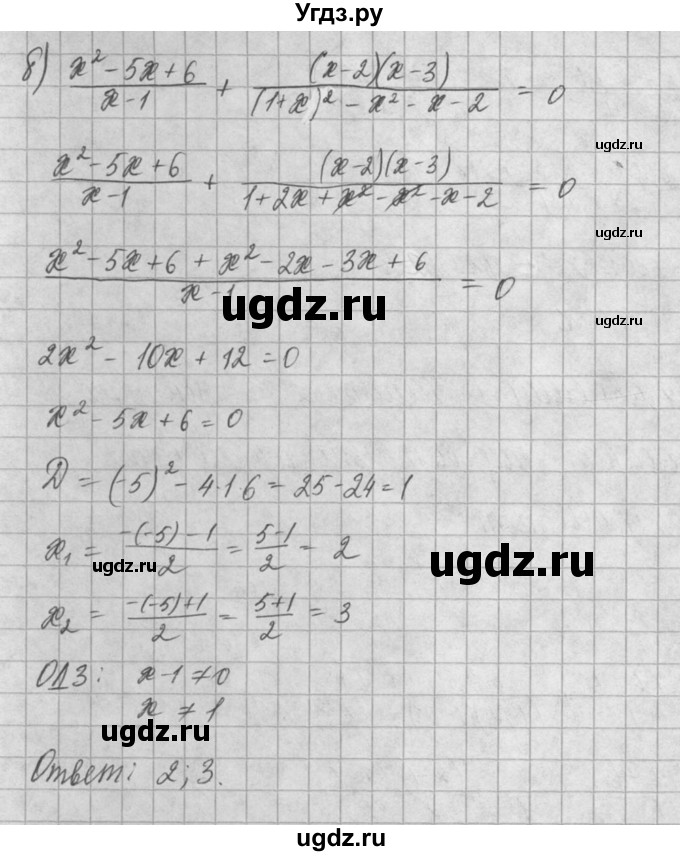 Угдз.ру
б) (x² - 5x + 6)/(x - 1) + ((x-2)(x-3))/((1+x)² - x² - x - 2) = 0
ugdz.ru
(x² - 5x + 6)/(x - 1) + ((x-2)(x-3))/(1 + 2x + x² - x² - x - 2) = 0
ugdz.ru
(x² - 5x + 6 + x² - 2x - 3x + 6)/(x - 1) = 0
ugdz.ru
ugdz.ru
2x² - 10x + 12 = 0
x² - 5x + 6 = 0
D = (-5)² - 4·1·6 = 25 - 24 = 1
x₁ = (-(-5) - 1)/2 = (5-1)/2 = 2
ugdz.ru
ugdz.ru
x₂ = (-(-5) + 1)/2 = (5+1)/2 = 3
ОДЗ: x - 1 ≠ 0
x ≠ 1
ugdz.ru
Ответ: 2; 3.
ugdz.ru
ugdz.ru